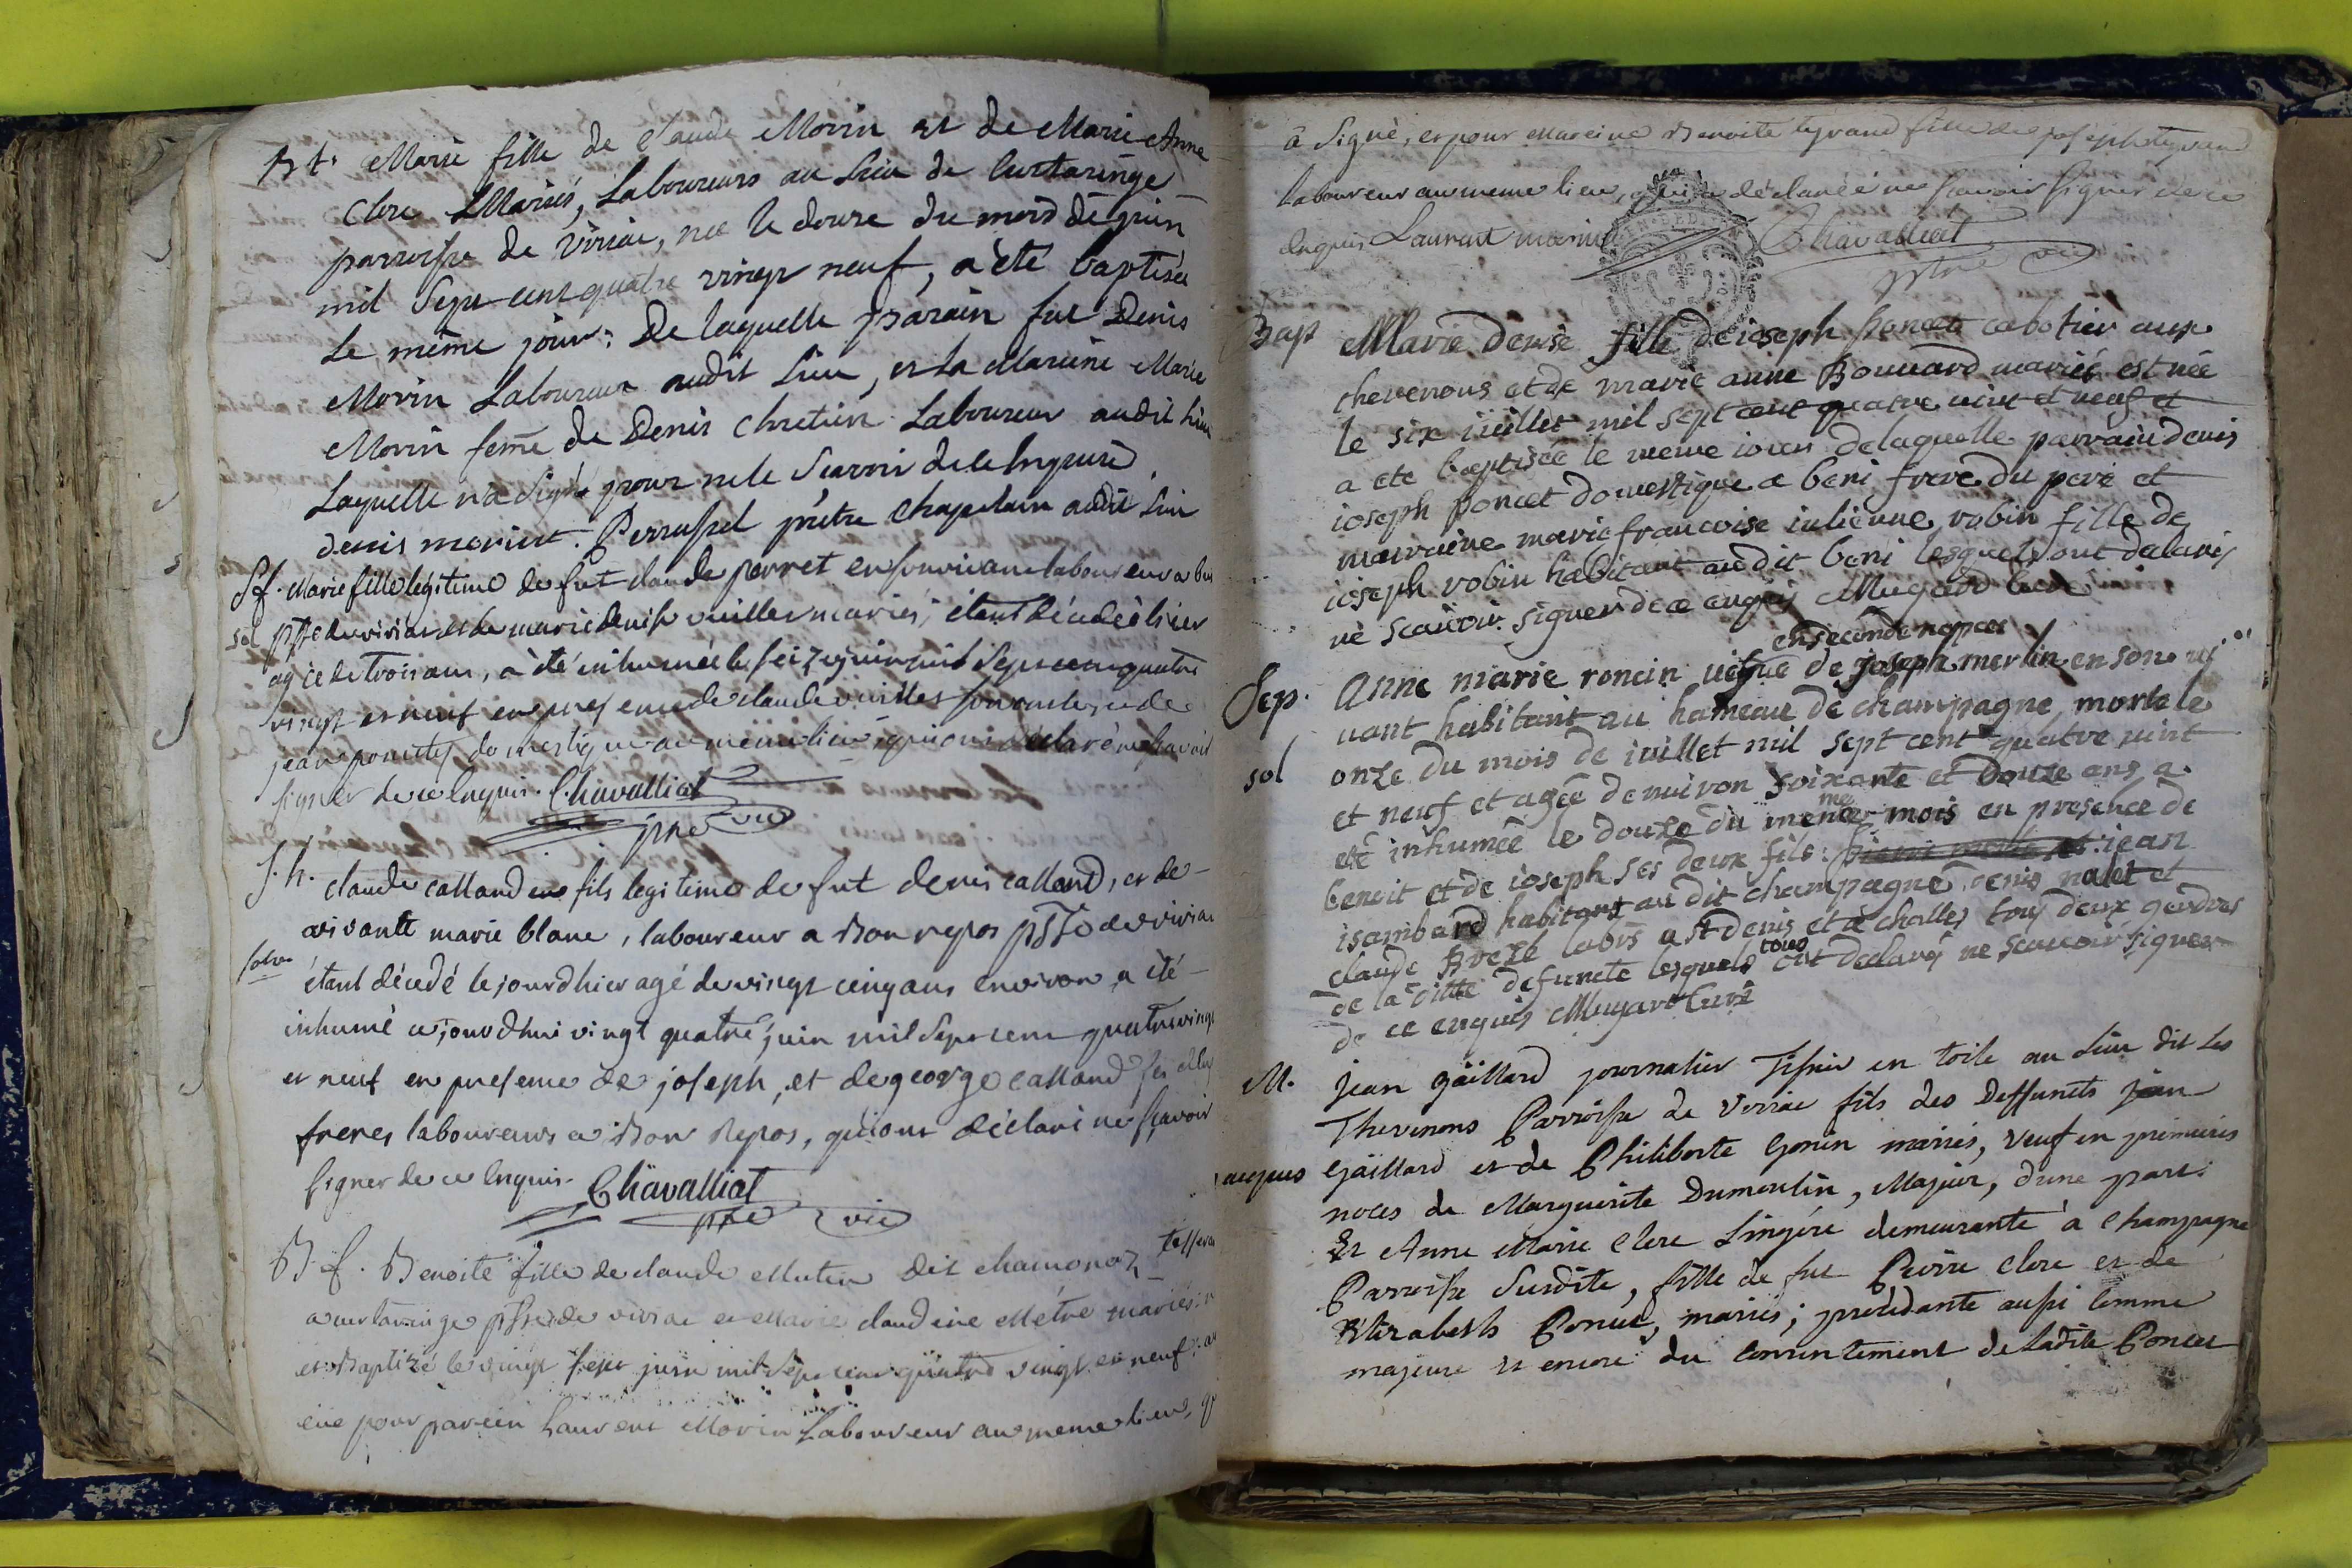 Bt. Marie fille de Claude Morin et de Marie Anne
Clerc Mariés, Laboureurs au Lieu de Curtaringe
parroisse de Viriac, née le douze du mois de juin
mil sept cent quatre vingt neuf, a été baptisée
Le même jour; De laquelle parain fut Denis
Morin Laboureur audit Lieu, et la Mareine Marie
Morin feme de Denis Chretien Laboureur audit lieu
Laquelle n'a signé pour ne le scavoir de ce Enquise
denis morient. Perrussel prêtre Chapelain audit Lieu
Sf. Marie fille legitime de fut claude perret en son vivant laboureur a
sol psse de viriac et de marie denise vuiller mariés, étant décédée hier
agée de trois ans, a été inhumée le seize juin mil sept cent quatre
vingt et neuf en presence de claude vuiller son oncle, et de
jean poncet domestique au même lieu qui ont déclaré ne scavoir
signer de ce Enquis. Chavalliat
ptre vic
S. h. claude calland fils legitime de fut denis calland, et de
vivante marie blanc, laboureur a Bon repos psse de viriac
solv. étant décedé le jourd'hier agé de vingt cinq ans environ a été
inhumé ajourd'hui vingt quatre juin mil sept cent quatre vingt
et neuf en presence de joseph, et de george calland ses
freres laboureurs a Bon Repos, qui ont déclaré ne scavoir
signer de ce Enquis. Chavalliat
ptre vic
B. f. Benoite fille de claude Mutin dit chamonoz
a curtaringe psse de viriac et Marie claudine Métre mariés
et Baptizé le vingt sept juin mil sept cent quatre vingt et neuf
eue pour parein Laurent Morin Laboureur au meme lieu, qui
a signé, et pour mareine Benoite tyrand fille de joseph tyrand
Laboureur au meme lieu, qui a déclarée ne scavoir signer de ce
Enquis Laurent morin Chavalliat
ptre vic
Bap Marie denise fille de ioseph poncet cabotier aux
thevenons et de marie anne Bouvard mariés est née
le six iuillet mil sept cent quatre vint et neuf et
a ete baptisée le meme iour de laquelle parrain denis
ioseph poncet domestique a beni frere du pere et
marraine marie francoise iulienne robin fille de
ioseph robin habitant audit beni lesquels ont declarés
ne scavoir signer de ce enquis Mugard curé
en seconde nopces
Sep. Anne marie roncin vefue de joseph merlin en son vi
vant habitant au hameau de champagne morte le
sol onze du mois de iuillet mil sept cent quatre vint
et neuf et agée denuiron soixante et douze ans, a
eté inhumée le douze du meme mois en presence de
benoit et de ioseph ses deux fils: iean
isambard habitant au dit champagne, denis nalet et
claude Broze labrs a st Denis et a challes tous deux gendres
de la ditte defuncte lesquels tous ont declarés ne scauoir signer
de ce enquis Mugard Curé
M. Jean Gaillard journalier Tissier en toile au Lieu dit Les
Thevenons Parroisse de Verriac fils des Deffunts jean
jacques Gaillard et de Philiberte Gonin mariés, Veuf en premieres
noces de Marguerite Dumoulin, Majeur, d'une part:
Et Anne Marie Clerc Lingére demeurante à Champagne
Parroisse Susdite, fille de fut Pierre Clerc et de
Elizabeth Poncet, mariés; procédante aussi comme
majeure et encore du Consentement de Ladite Poncet